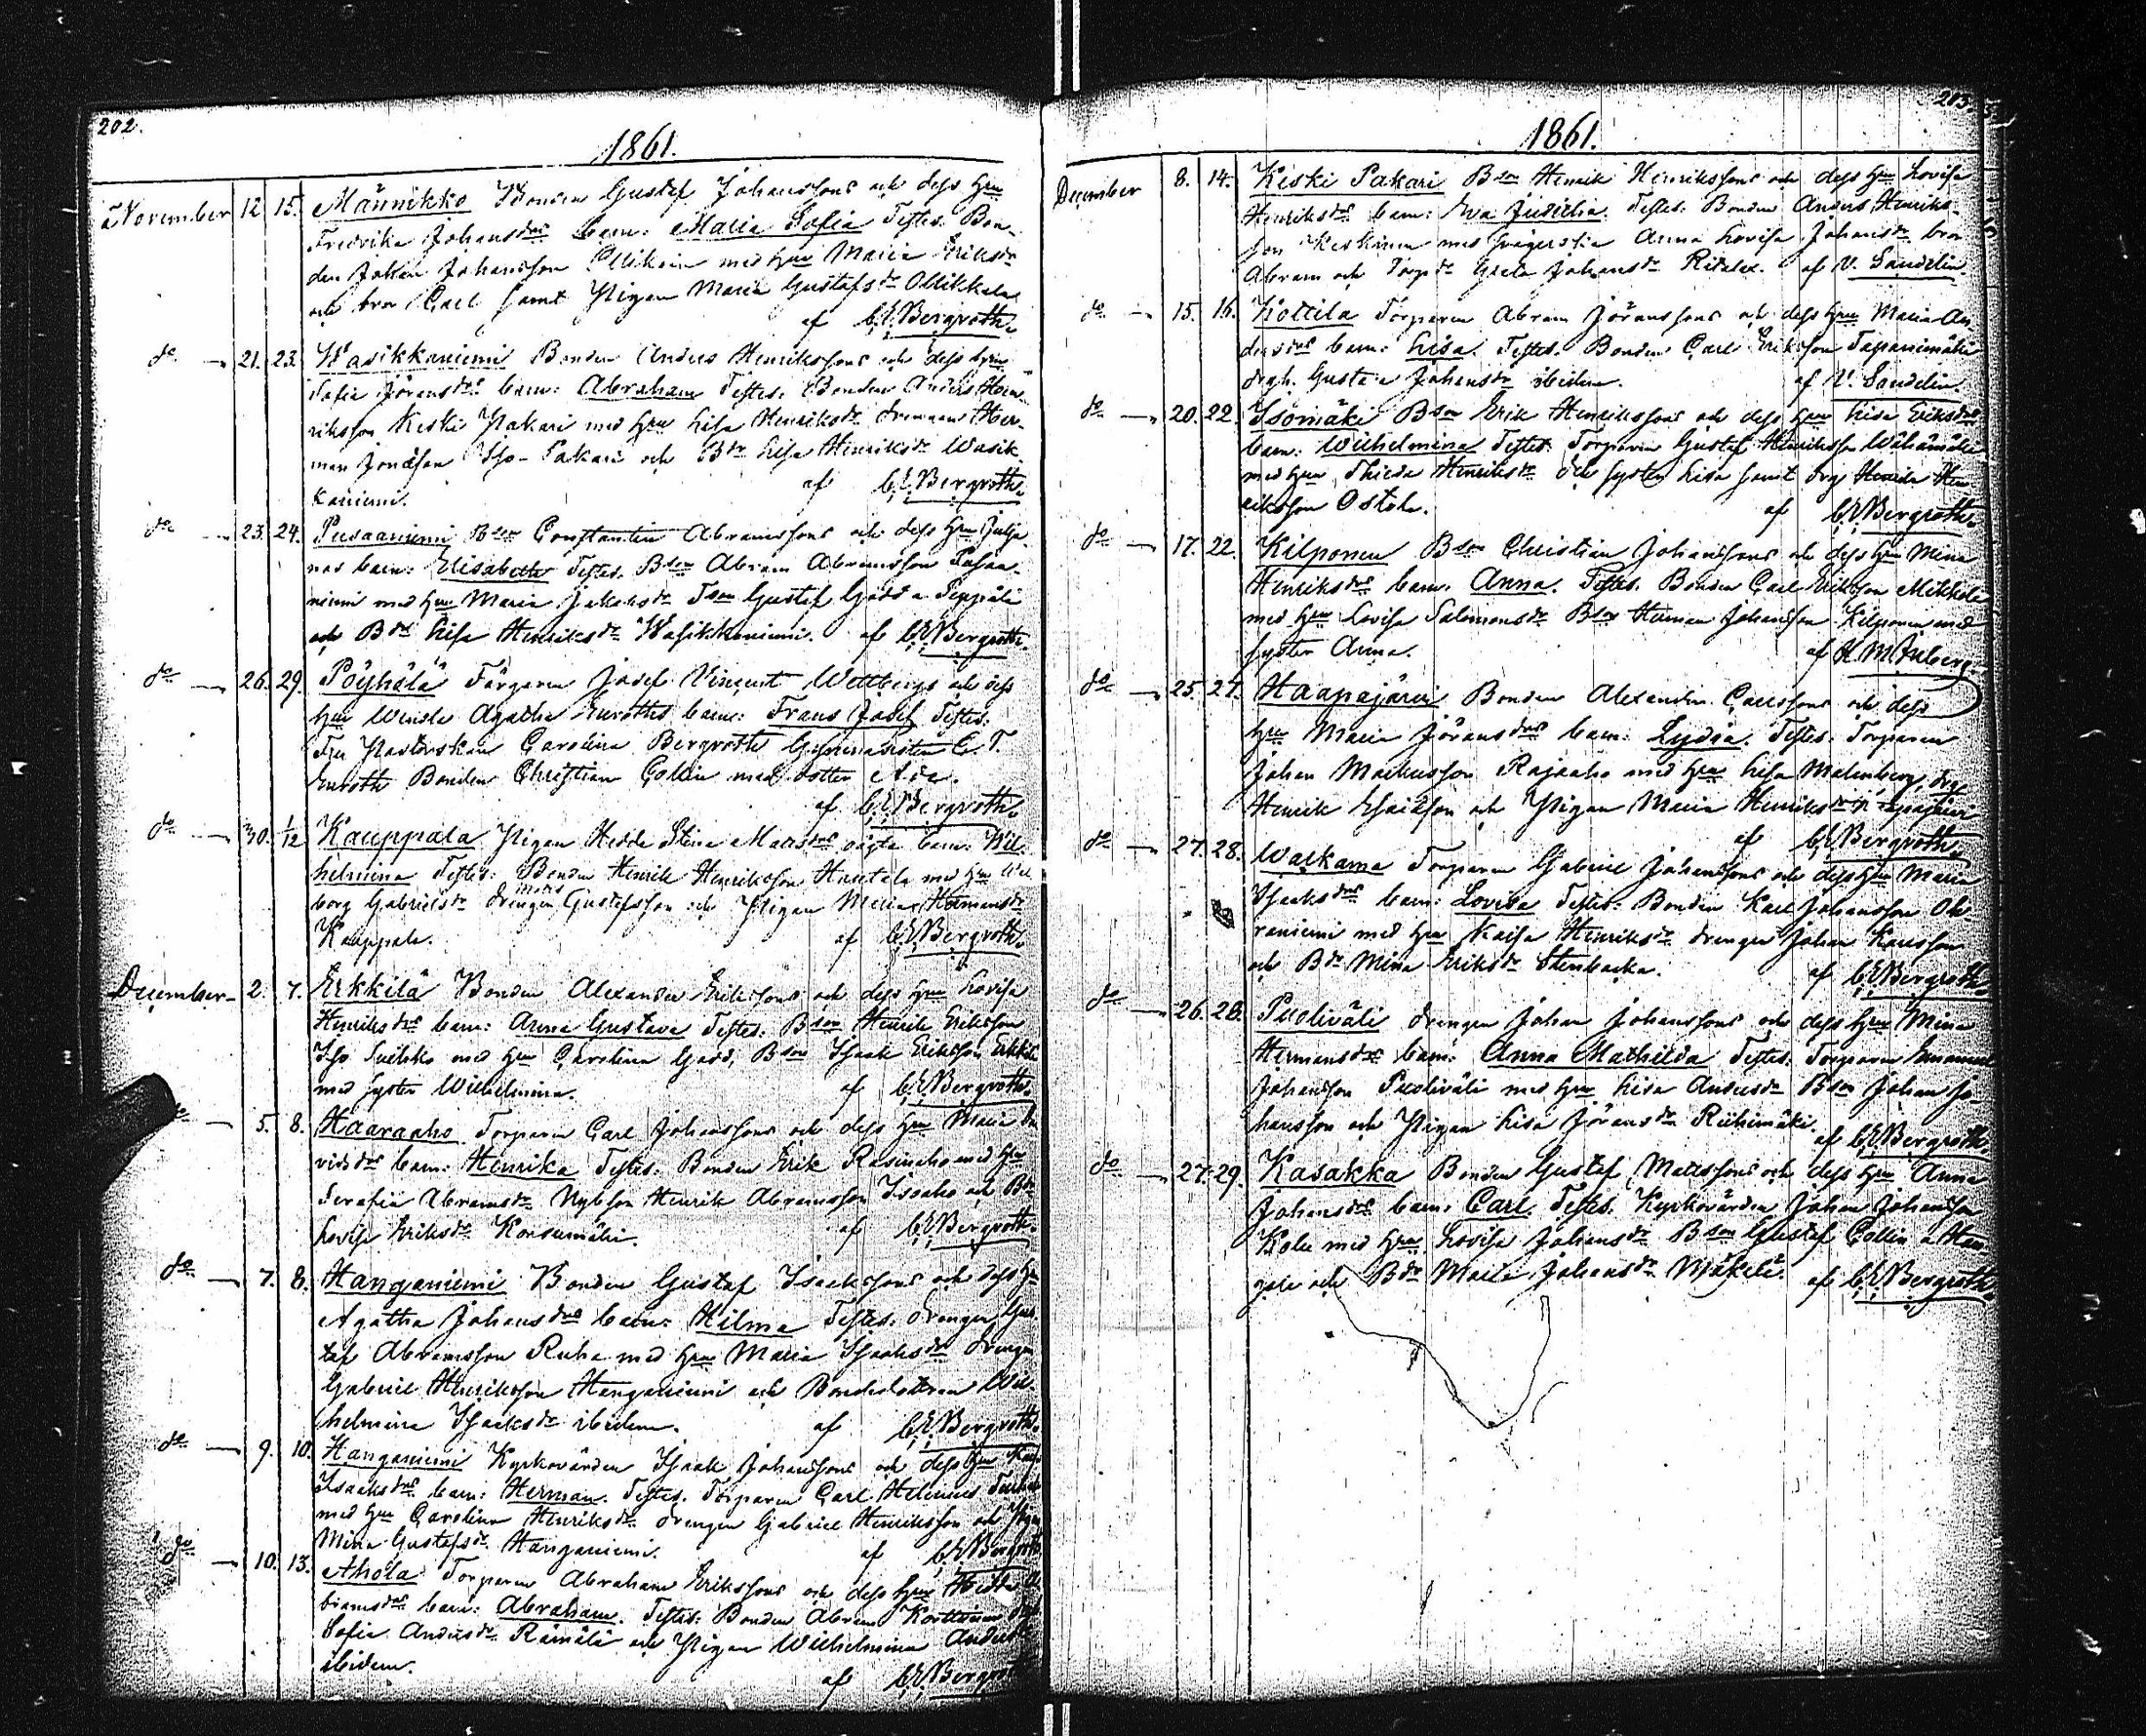 202.
1861.
November 12. 15. Männikkö Bonden Gustaf Johanssons och dess hru
Fredrika Johansdrs barn: Maria Sofia Testes. Bon-
den Johan Johansson Ollikain med hru Maria Eriksdr
och bror Carl samt Pigan Maria Gustafsdr Ollikkala
af C.E. Bergroth.
do 21. 23. Wasikkaniemi Bonden Anders Henrikssons och dess hru
Sofia Jöransdrs barn: Abraham Testes: Bonden Anders Hen-
riksson Keski Pakari med hru Lisa Henriksdr drengen Her-
man Jonasson Iso-Pakari och Bdr Lisa Henriksdr Wasik-
kaniemi. af C.E. Bergroth.
do 23. 24. Pusaaniemi Bson Constantin Abramssons och dess hru Julia-
nas barn: Elisabeth Testes. Bson Abram Abramsson Pusaa-
niemi med hru Maria Jakobsdr Gustaf Gädda Seppälä
och Bdr Lisa Henriksdr Wasikkaniemi. af C.E. Bergroth.
do 26. 29. Pöyhölä Färgaren Josef Vincent Wettbergs och dess
hru Wendla Agatha Euroths barn: Frans Josef Testes:
Fru Pastorskan Carolina Bergroth Gymnasisten C. T.
Euroth Bonden Christian Collin med dotter Ada.
af C.E. Bergroth.
do 30. 1/12 Kauppala Pigan Hedda Stina Matsdrs oägta barn: Wil-
helmina Testes: Bonden Henrik Henriksson Hautala med hru Wal-
borg Gabrielsdr drengen Mats Gustafsson och Pigan Maria Hermansdr
Kauppala. af C.E. Bergroth.
December 2. 7. Erkkilä Bonden Alexander Erikssons och dess hru Lovisa
Henriksdrs barn: Anna Gustava Testes: Bson Henrik Eriksson
Iso Suikko med hru Carolina Gädd, Bson Isaak Eriksson Erkkilä
med syster Wilhelmina. af C.E. Bergroth.
do 5. 8. Haaraaho Torparen Carl Johanssons och dess hru Maria Da-
vidsdrs barn: Henrika Testes: Bonden Erik Rasinaho med hru
Serafia Abramsdr Nybson Henrik Abramsson Isoaho och Bdr
Lovisa Eriksdr Korsumäki. af C.E. Bergroth.
do 7. 8. Hanganiemi Bonden Gustaf Isaakssons och dess hru
Agatha Johansdrs barn: Hilma Testes. drengen Gus-
taf Abramsson Ruha med hru Maria Isaaksdr drengen
Gabriel Henriksson Hanganiemi och Bondedottren Wil-
helmina Isaaksdr ibidem. af C.E. Bergroth.
do 9. 10. Hanganiemi Kyrkovärden Isaak Johanssons och dess hru
Isaaksdrs barn: Herman. Testes. Torparen Carl Helenius
med hru Carolina Henriksdr drengen Gabriel Henriksson och Pigan
Mina Gustafsdr Hanganiemi. af C.E. Bergroth
do 10. 13. Ahola Torparen Abraham Erikssons och dess hru Hedda A-
bramsdrs barn: Abraham. Testes: Bonden Abram
Sofia Andersdr Rämälä och Pigan Wilhelmina Andersdr
ibidem. af C.E. Bergroth
203.
1861.
December 8. 14. Keski Pakari Bson Henrik Henrikssons och dess hru Lovisa
Henriksdrs barn: Eva Judithia. Testes: Bonden Anders Henriks-
son Keskinen med svägerska Anna Lovisa Johansdr bror
Abram och Torpdr Greta Johansdr Ritola. af V. Sandelin.
do 15. 16. Kottila Torparen Abram Jöranssons och dess hru Maria An-
dersdrs barn: Lisa. Testes. Bonden Carl Eriksson Tapanimäki
drgh. Gustava Johansdr ibidem. af V. Sandelin.
do 20. 22. Isomäki Bson Erik Henrikssons och dess hru Lisa Eriksdrs
barn: Wilhelmina Testes: Torparen Gustaf Henriksson Wähämäki
med hru Thilda Henriksdr och syster Lisa samt drg
riksson Ostola. af C.E. Bergroth.
do 17. 22. Kilponen Bson Christian Johanssons och dess hru Mina
Henriksdrs barn: Anna. Testes. Bonden Carl Eriksson Mikkola
med hru Lovisa Salomonsdr Bson Herman Johansson Kilponen med
syster Anna. af H. M. Inberg.
do 25. 27. Haapajärvi Bonden Alexander Carlssons och dess
hru Maria Jöransdrs barn: Lydia. Testes. Torparen
Johan Markusson Rajaaho med hru Lisa Malmberg, drg
Henrik Esaiasson och Pigan Maria Henriksdr Haapajärvi
af C.E. Bergroth.
do 27. 28. Warkama Torparen Gabriel Johanssons och dess hru Maria
Isaksdrs barn: Lovisa Testes: Bonden Karl Johansson Oh-
raniemi med hru Kaisa Henriksdr drengen Johan Karlsson
och Bdr Mina Eriksdr Stenbacka. af C.E. Bergroth.
do 26. 28. Puoliväli drengen Johan Johanssons och dess hru Mina
Hermansdrs barn: Anna Mathilda Testes: Torparen Emanuel
Johansson Puoliväli med hru Lisa Andersdr Bson Johan Jo-
hansson och Pigan Lisa Jöransdr Riihimäki. af C.E. Bergroth.
do 27. 29. Kasakka Bonden Gustaf Matssons och dess hru Anna
Johansdrs barn: Carl. Testes. Kyrkovärden Johan Johansson
Kola med hru Lovisa Johansdr Bson Gustaf Collin a Han-
gala och Bdr Maria Johansdr Mäkelä. af C.E. Bergroth.